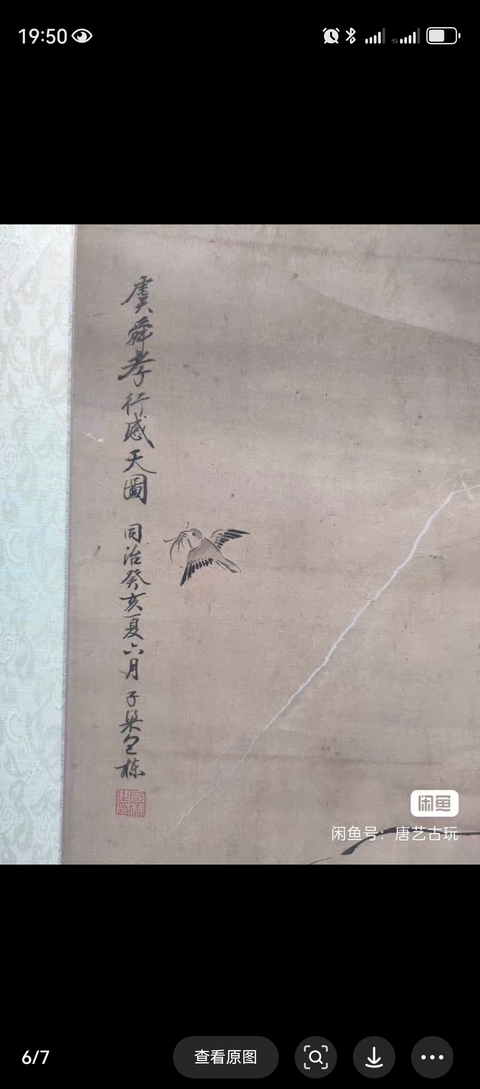 19:50
虞舜孝行感天圖 同治癸亥夏六月 子梁王棟
闲鱼
闲鱼号：唐艺古玩
6/7
查看原图